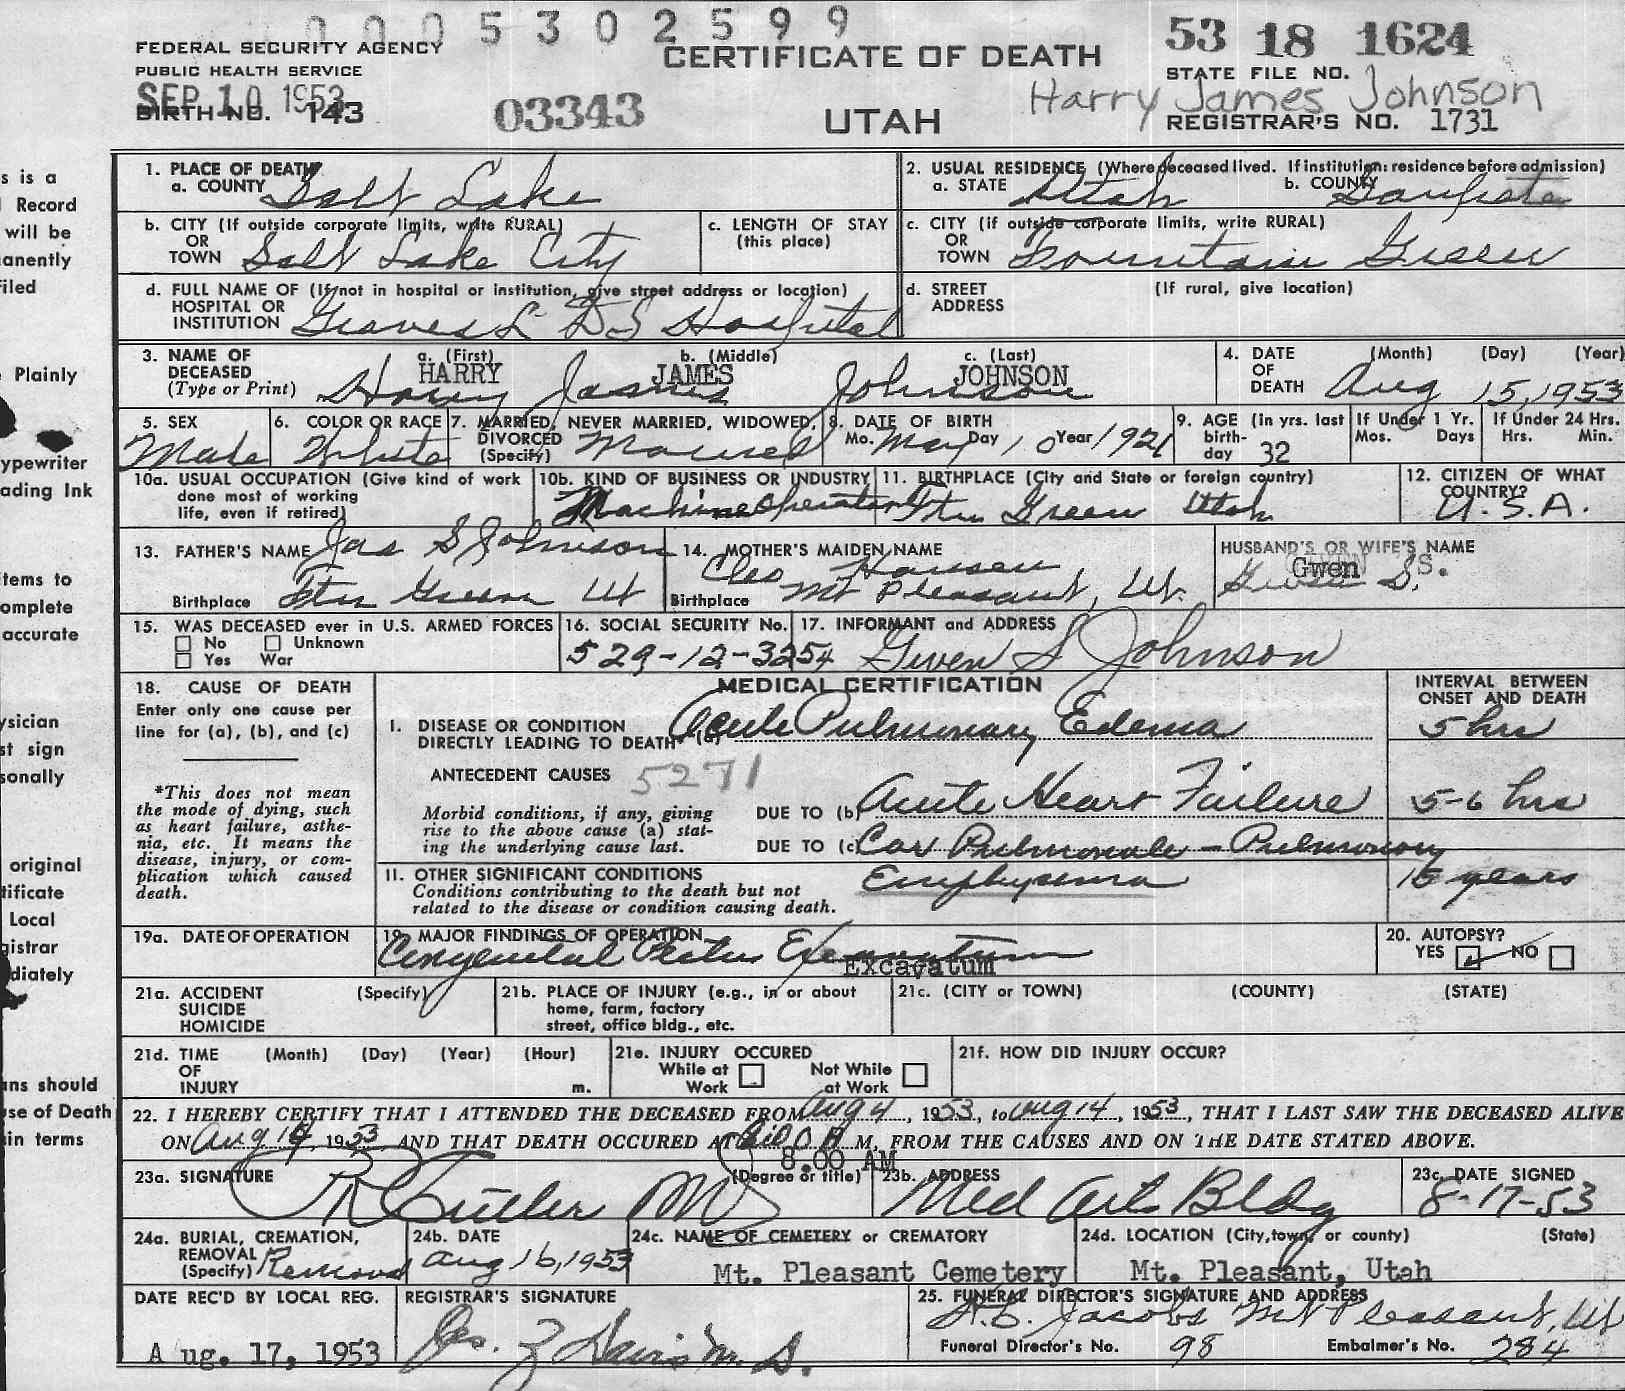 0005302599
FEDERAL SECURITY AGENCY
PUBLIC HEALTH SERVICE
SEP 10 1953
BIRTH NO. 143
03343
CERTIFICATE OF DEATH
UTAH
53 18 1624
STATE FILE NO.
Harry James Johnson
REGISTRAR'S NO. 1731
s is a
Record
will be
anently
iled
Plainly
ypewriter
ading Ink
tems to
omplete
accurate
ysician
st sign
sonally
original
tificate
Local
gistrar
diately
ans should
se of Death
in terms
1. PLACE OF DEATH
a. COUNTY Salt Lake
2. USUAL RESIDENCE (Where deceased lived. If institution: residence before admission)
a. STATE Utah b. COUNTY Sanpete
b. CITY (If outside corporate limits, write RURAL)
OR
TOWN Salt Lake City
c. LENGTH OF STAY
(this place)
c. CITY (if outside corporate limits, write RURAL)
OR
TOWN Fountain Green
d. FULL NAME OF (If not in hospital or institution, give street address or location)
HOSPITAL OR
INSTITUTION Groves L D S Hospital
d. STREET (If rural, give location)
ADDRESS
3. NAME OF DECEASED
(Type or Print)
a. (First) b. (Middle) c. (Last)
HARRY JAMES JOHNSON
Harry James Johnson
4. DATE OF DEATH (Month) (Day) (Year)
Aug 15, 1953
5. SEX
Male
6. COLOR OR RACE
White
7. MARRIED, NEVER MARRIED, WIDOWED,
DIVORCED
(Specify) Married
8. DATE OF BIRTH
Mo. May Day 10 Year 1921
9. AGE (in yrs. last
birth-
day 32
If Under 1 Yr.
Mos. Days
If Under 24 Hrs.
Hrs. Min.
10a. USUAL OCCUPATION (Give kind of work
done most of working
life, even if retired)
10b. KIND OF BUSINESS OR INDUSTRY
Machine Operator
11. BIRTHPLACE (City and State or foreign country)
Ftn Green Utah
12. CITIZEN OF WHAT
COUNTRY?
U.S.A.
13. FATHER'S NAME Jas S Johnson
Birthplace Ftn Green Ut
14. MOTHER'S MAIDEN NAME
Cleo Hansen
Birthplace Mt Pleasant, Ut.
HUSBAND'S OR WIFE'S NAME
Gwen S.
Gwen S.
15. WAS DECEASED ever in U.S. ARMED FORCES
No Unknown
Yes War
16. SOCIAL SECURITY No.
529-12-3254
17. INFORMANT and ADDRESS
Gwen S Johnson
18. CAUSE OF DEATH
Enter only one cause per
line for (a), (b), and (c)
*This does not mean
the mode of dying, such
as heart failure, asthe-
nia, etc. It means the
disease, injury, or com-
plication which caused
death.
MEDICAL CERTIFICATION
INTERVAL BETWEEN
ONSET AND DEATH
I. DISEASE OR CONDITION
DIRECTLY LEADING TO DEATH* (a) Acute Pulmonary Edema 5 hrs
ANTECEDENT CAUSES 5271
Morbid conditions, if any, giving
rise to the above cause (a) stat-
ing the underlying cause last.
DUE TO (b) Acute Heart Failure 5-6 hrs
DUE TO (c) Cor Pulmonale - Pulmonary
Emphysema 15 years
11. OTHER SIGNIFICANT CONDITIONS
Conditions contributing to the death but not
related to the disease or condition causing death.
19a. DATE OF OPERATION
19. MAJOR FINDINGS OF OPERATION
Congenital Pectus Excavatum
Excavatum
20. AUTOPSY?
YES NO
21a. ACCIDENT (Specify)
SUICIDE
HOMICIDE
21b. PLACE OF INJURY (e.g., in or about
home, farm, factory
street, office bldg., etc.
21c. (CITY or TOWN) (COUNTY) (STATE)
21d. TIME (Month) (Day) (Year) (Hour)
OF
INJURY m.
21e. INJURY OCCURED
While at Not While
Work at Work
21f. HOW DID INJURY OCCUR?
22. I HEREBY CERTIFY THAT I ATTENDED THE DECEASED FROM Aug 4, 1953, to Aug 14, 1953, THAT I LAST SAW THE DECEASED ALIVE
ON Aug 14, 1953 AND THAT DEATH OCCURED AT M, FROM THE CAUSES AND ON THE DATE STATED ABOVE.
8.00 AM
23a. SIGNATURE (Degree or title)
R Cutler MD
23b. ADDRESS
Med Arts Bldg
23c. DATE SIGNED
8-17-53
24a. BURIAL, CREMATION,
REMOVAL
(Specify) Removal
24b. DATE
Aug 16, 1953
24c. NAME OF CEMETERY or CREMATORY
Mt. Pleasant Cemetery
24d. LOCATION (City, town, or county) (State)
Mt. Pleasant, Utah
DATE REC'D BY LOCAL REG.
Aug. 17, 1953
REGISTRAR'S SIGNATURE
Jas. Z Davis M. D.
25. FUNERAL DIRECTOR'S SIGNATURE AND ADDRESS
Jacobs Mt Pleasant, Ut
Funeral Director's No. 98 Embalmer's No. 284